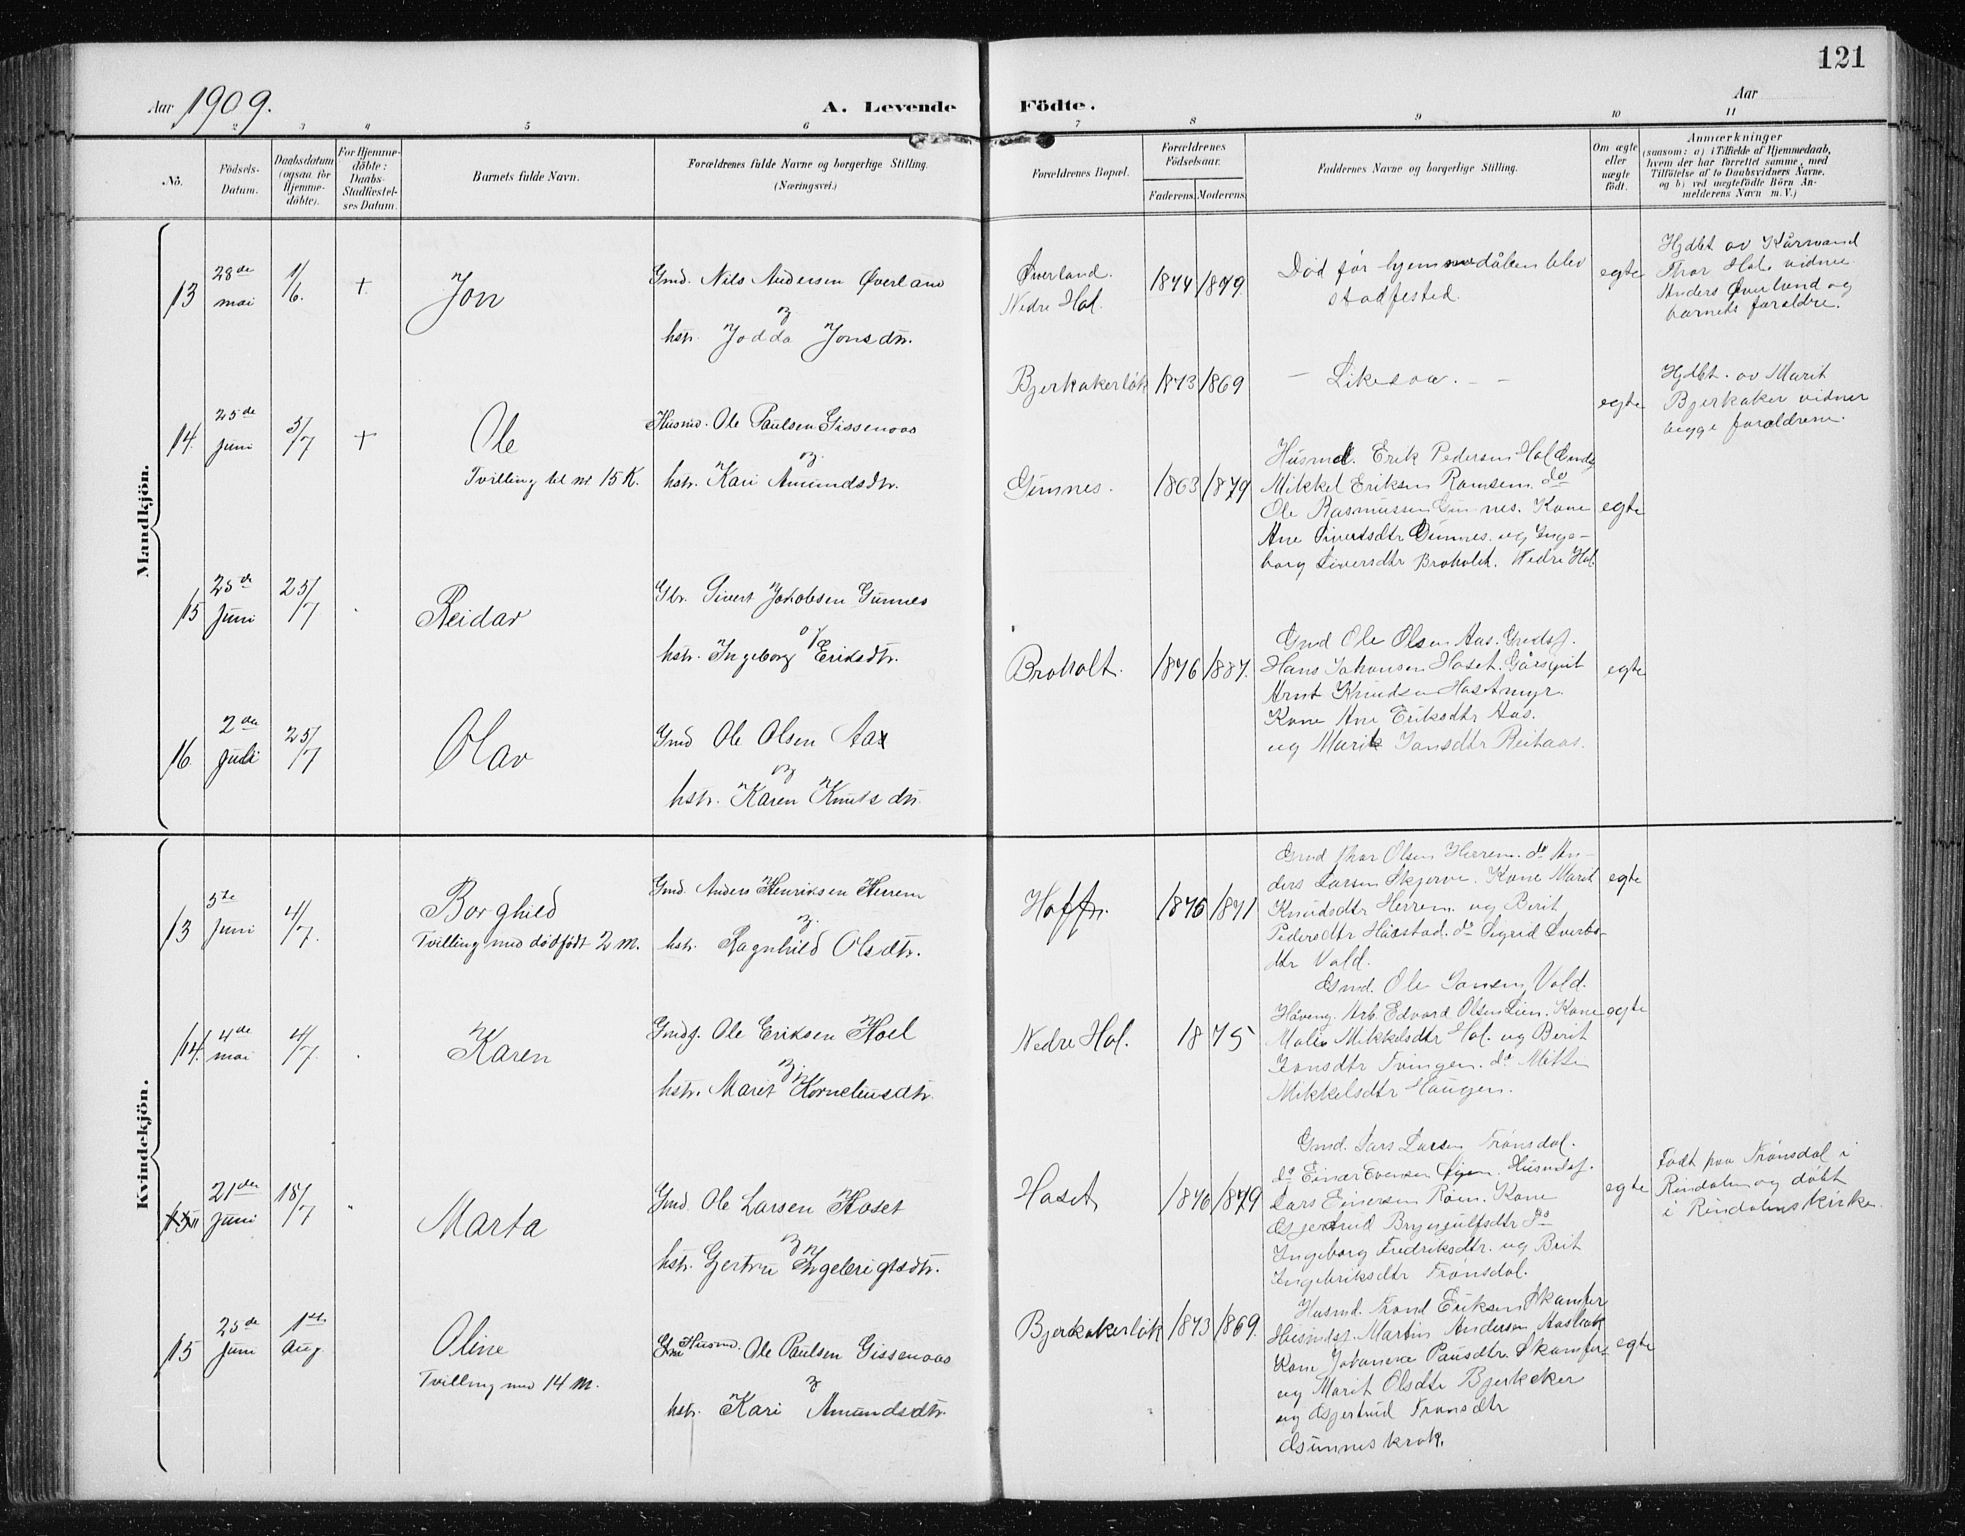 121
Aar 1909.
A. Levende Födte.
Aar
2 3 4 5 6 7 8 9 10 11
No.
Födsels-
Datum.
Daabsdatum
(ogsaa for
Hjemme-
döbte).
For Hjemme-
döbte:
Daabs-
Stadfæstel-
ses Datum.
Barnets fulde Navn.
Forældrenes fulde Navne og borgerlige Stilling.
(Næringsvei.)
Forældrenes Bopæl.
Forældrenes
Födselsaar.
Faderens. Moderens.
Faddernes Navne og borgerlige Stilling.
Om ægte
eller
uægte
födt.
Anmærkninger
(saasom: a) i Tilfælde af Hjemmedaab,
hvem der har forrettet samme, med
Tilföielse af to Daabsvidners Navne.
og b) ved uægtefödte Börn An-
melderens Navn m. V.)
Mandkjön.
13
28de
mai
1/6.
+
Jon
Gmd. Nils Andersen Øverland
og
hstr. Jodda Jonsdtr.
Øverland.
Nedre Hol.
1874 1879
Død før hjemmedåben blev
stadfested.
egte
Hjdbt av Kårmand
Thor Hol. vidner
Anders Øverland og
barnets foraldre.
14.
25de
Juni
5/7
+
Ole
Tvilling til nr 15 K.
Husmd. Ole Paulsen Gissenaas
og
hstr. Kari Amundsdtr.
Bjerkakerløk
1873 1869
- Likesaa. - -
egte
Hjdbt. av Marit
Bjerkaker vidner
begge foraldrene.
15
25de
Juni
25/7
Reidar
Gbr. Sivert Jakobsen Gunnes
og
hstr. Ingeborg Eriksdtr.
Gunnes.
1863 1879
Husmd. Erik Pedersen Hol
Mikkel Eriksen Romsem. do
Ole Rasmussen Gunnes. Kone
Ane Sivertsdtr Gunnes. og Inge-
borg Siversdtr Broholt. Nedre Hol.
egte
16
2den
Juli
25/7
Olav
Gmd Ole Olsen Aas
og
hstr. Karen Knuts dtr.
Broholt.
1876 1887.
Gmd Ole Olsen Aas. Gmdsf.
Hans Johansen Hoset. Gårsgut
Arnt Knudsen Hosetmyr.
Kone Ane Eriksdtr Aas.
og Marit Jonsdtr Reitaas.
egte
Kvindekjön.
13
5te
Juni
4/7.
Borghild
Tvilling med dødfødt 2 M.
Gmd. Anders Henriksen Heerem
og.
hstr. Ragnhild Olsdtr.
Hoff
1876 1871
Gmd Thor Olsen Hærem. do An-
ders Larsen Skjerve. Kone Marit
Knudsdtr Herrem. og Berit
Pedersdtr Håestad. do Sigrid
dtr Vold.
egte
14.
4de
mai
4/7.
Karen
Gmdf. Ole Eriksen Hoel
og
hstr. Marit Korneliusdtr.
Nedre Hol.
1875
Gmd. Ole Jonsen Vold.
Håveng. Arb. Edvard Olsen Lien. Kone
Malia Mikkelsdtr Hol. og Berit
Jonsdtr Tvingen. do Mette
Mikkelsdtr Haugen.
egte
21den
Juni
18/7
"
Marta
Gmd. Ole Larsen Hoset
og
hstr. Gjertru Ingebrigtsdtr.
Hoset
1876 1879
Gmd. Lars Larsen Trønsdal.
do Einar Evensen Øyen. Husmdsf.
Lars Einersen Røen. Kone
Gjertrud Brynjulfsdtr do
Ingeborg Fredriksdtr. og Brit
Ingebriksdtr Trønsdal.
egte
Født paa Trønsdal i
Rindalen og døbt
i Rindalenskirke.
15
25de
Juni
1ste
Aug.
Oline
Tvilling med 14 M.
Husmd. Ole Paulsen Gissenaas
og
hstr. Kari Amundsdtr.
Bjerkakerløk
1873 1869.
Husmd. Trond Eriksen Skamfer
Husmdsf. Martin Andersen Aasbak
Kone Johanna Paulsdtr. Skamfer-
og Marit Olsdtr Bjerkeker
og Gjertrud Tronsdtr
Gunneskrok.
egte